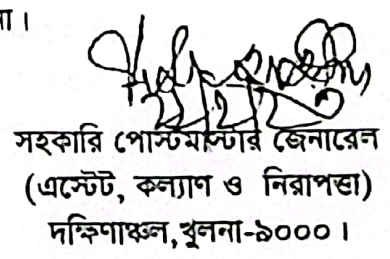 া।
সহকারি পোস্টমাস্টার জেনারেল
(এস্টেট, কল্যাণ ও নিরাপত্তা)
দক্ষিণাঞ্চল, খুলনা-৯০০০।